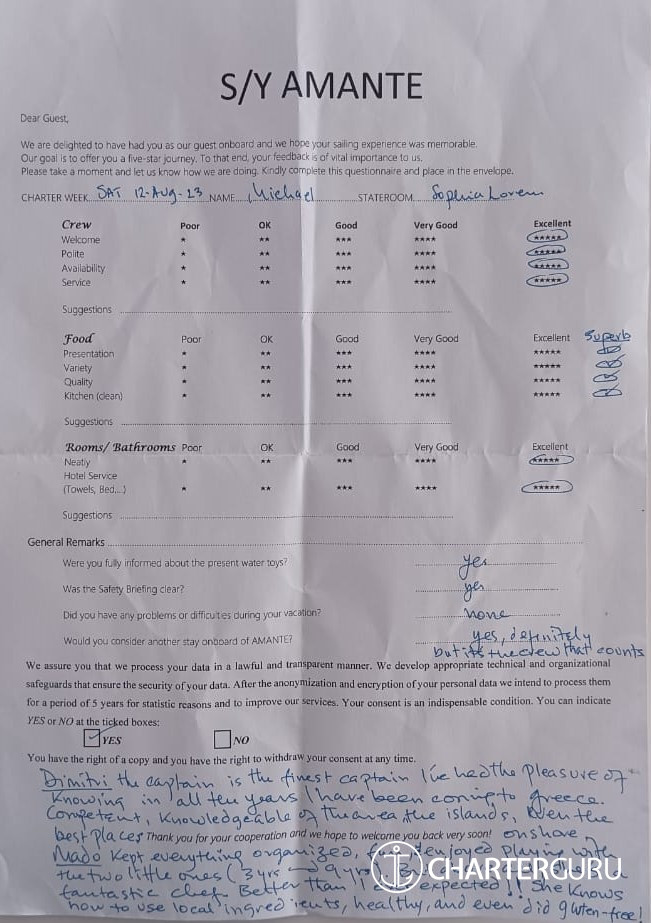 S/Y AMANTE
Dear Guest,
We are delighted to have had you as our guest onboard and we hope your sailing experience was memorable.
Our goal is to offer you a five-star journey. To that end, your feedback is of vital importance to us.
Please take a moment and let us know how we are doing. Kindly complete this questionnaire and place in the envelope.
CHARTER WEEK SAT 12-AUG-23 NAME Michael STATEROOM Sophia Loren
Crew Poor OK Good Very Good Excellent
Welcome * ** *** **** *****
Polite * ** *** **** *****
Availability * ** *** **** *****
Service * ** *** **** *****
Suggestions
Food Poor OK Good Very Good Excellent Superb
Presentation * ** *** **** *****
Variety * ** *** **** *****
Quality * ** *** **** *****
Kitchen (clean) * ** *** **** *****
Suggestions
Rooms/ Bathrooms Poor OK Good Very Good Excellent
Neatly * ** *** **** *****
Hotel Service
(Towels, Bed,...) * ** *** **** *****
Suggestions
General Remarks
Were you fully informed about the present water toys? yes
Was the Safety Briefing clear? yes
Did you have any problems or difficulties during your vacation? none
Would you consider another stay onboard of AMANTE? yes, definitely
but its the crew that counts
We assure you that we process your data in a lawful and transparent manner. We develop appropriate technical and organizational
safeguards that ensure the security of your data. After the anonymization and encryption of your personal data we intend to process them
for a period of 5 years for statistic reasons and to improve our services. Your consent is an indispensable condition. You can indicate
YES or NO at the ticked boxes:
YES NO
You have the right of a copy and you have the right to withdraw your consent at any time.
Dimitri the captain is the finest captain I've had the pleasure of
knowing in all ten years I have been coming to greece.
Competent, knowledgeable of the area, the islands, even the
best places Thank you for your cooperation and we hope to welcome you back very soon! onshore
Mado kept everything organized, enjoyed playing with
the two little ones (3yrs 9yrs CHARTERGURU
fantastic chef. Better than I expected!! She knows
how to use local ingredients, healthy, and even did gluten-free!